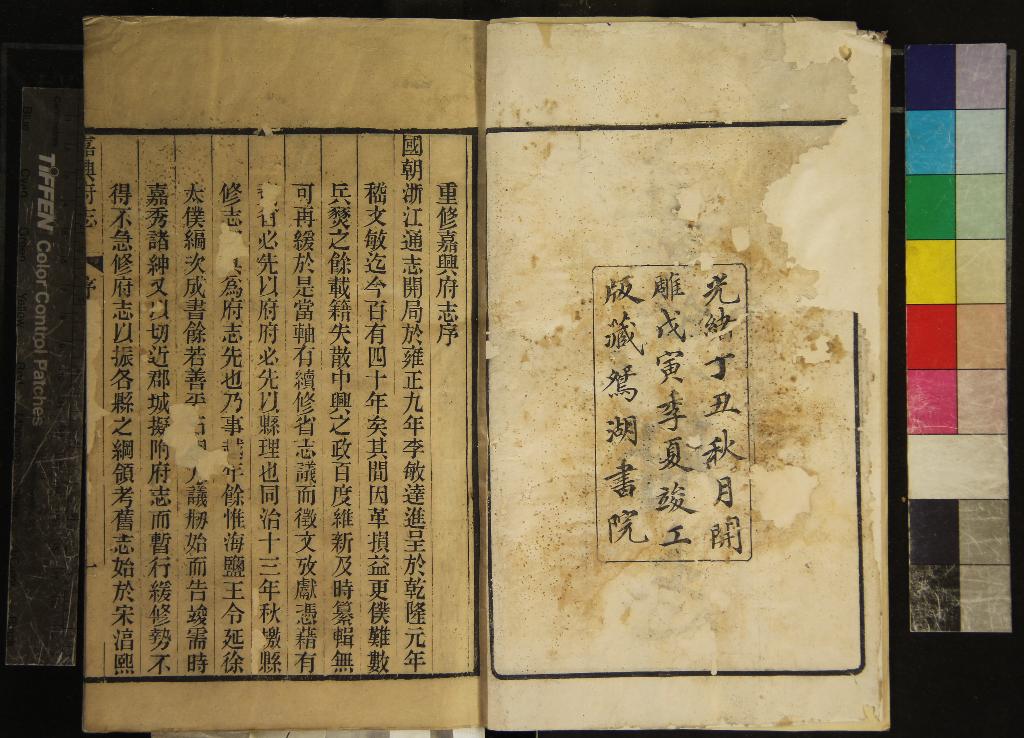 光緒丁丑秋月開
雕戊寅季夏竣工
版藏鴛湖書院
重修嘉興府志序
國朝浙江通志開局於雍正九年李敏達進呈於乾隆元年
嵇文敏迄今百有四十年矣其間因革損益更僕難數
兵燹之餘載籍失散中興之政百度維新及時纂輯無
可再緩於是當軸有續修省志議而徵文攷獻憑藉有
省必先以府府必先以縣理也同治十三年秋檄縣
修志 為府志先也乃事 年餘惟海鹽王令延徐
太僕編次成書餘若善平 議剏始而告竣需時
嘉秀諸紳又以切近郡城擬附府志而暫行緩修勢不
得不急修府志以振各縣之綱領考舊志始於宋淳熙
嘉興府志
序
一
TIFFEN Color Control Patches